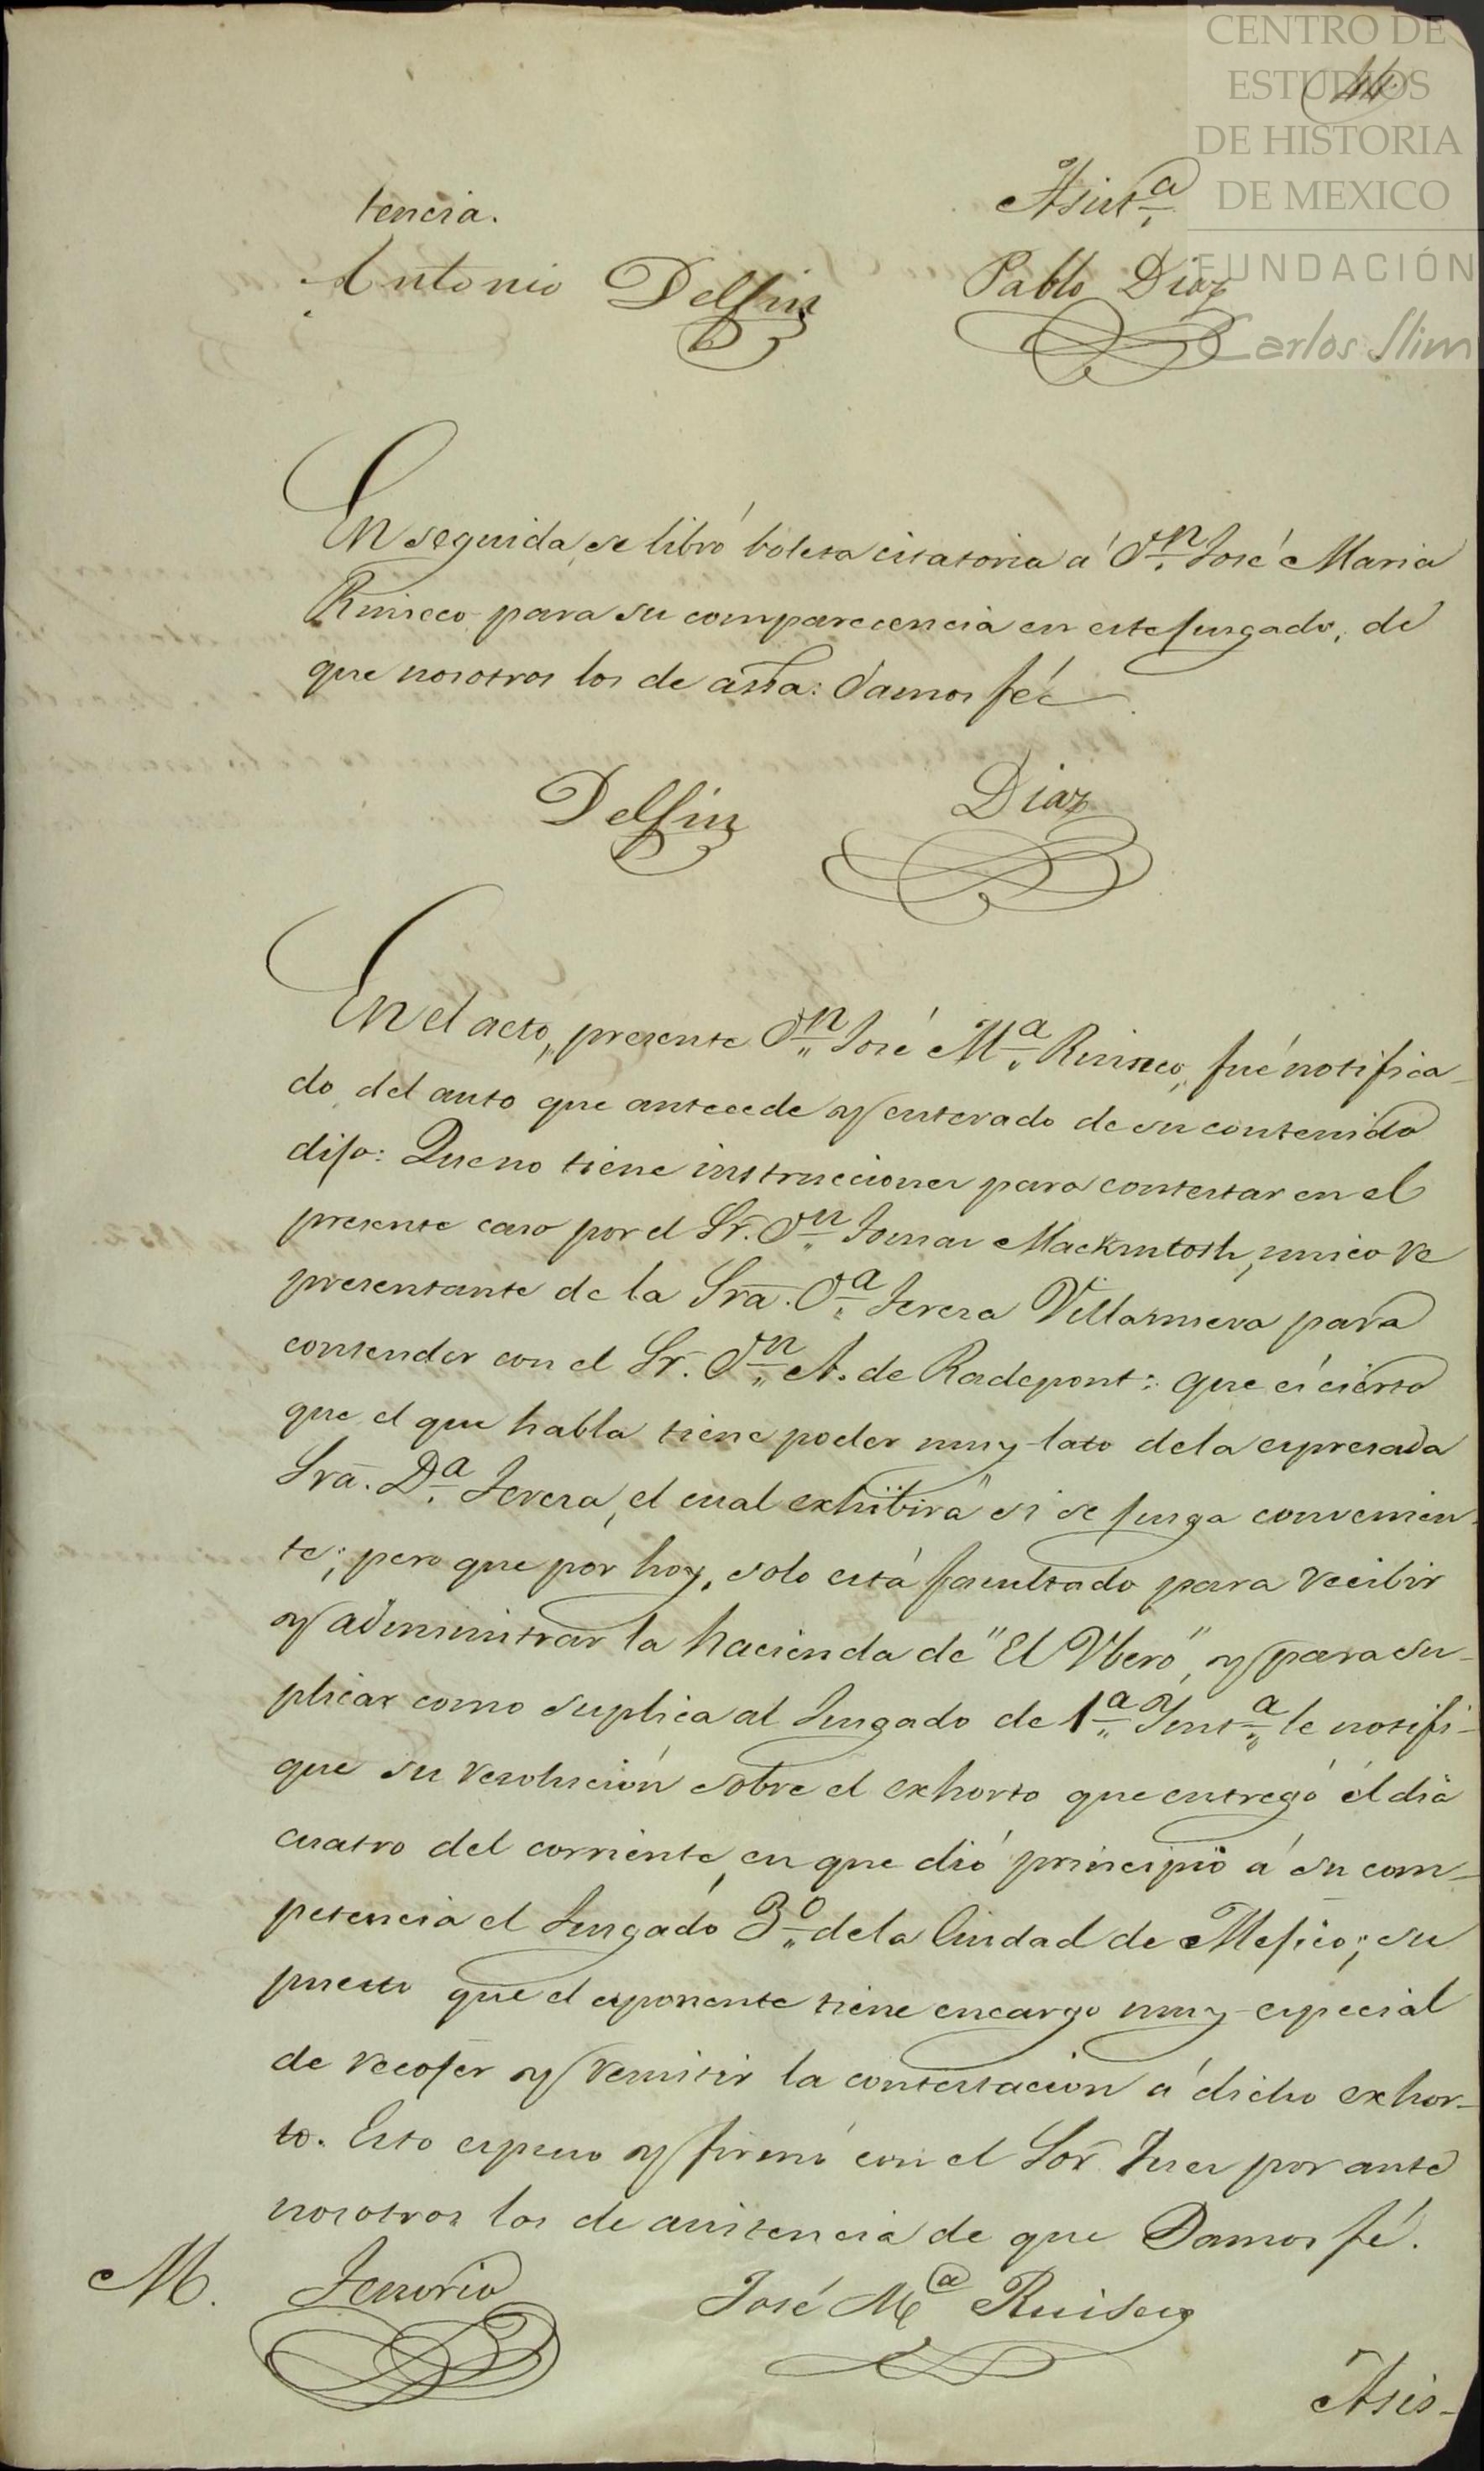 CENTRO DE
ESTUDIOS
DE HISTORIA
DE MEXICO
FUNDACIÓN
Carlos Slim
tencia. Asist.ª
Antonio Delfin Pablo Diaz
En seguida, se libró boleta citatoria á D.n José Maria
Ruiseco para su comparecencia en este jusgado, de
que nosotros los de assa: damos fé
Delfin Diaz
En el acto, presente D.n José M.ª Ruiseco, fué notifica-
do del auto que antecede y enterado de su contenido
dijo: Que no tiene instrucciones para contestar en el
presente caso por el Sr. D.n Tomas Mackintosh, unico re
presentante de la Sra. D.ª Teresa Villanueva para
contender con el Sr. D.n A. de Radepont: que és cierto
que el que habla tiene poder muy lato de la espresada
Sra. D.ª Teresa, el cual exhibirá si se jusga convenien-
te; pero que por hoy, solo está facultado para recibir
y administrar la hacienda de "El Ubero", y para su-
plicar como suplica al Jusgado de 1.ª Inst.ª le notifi-
que su resolución sobre el exhorto que entregó él dia
cuatro del corriente, en que dió principio á su com-
petencia el Jusgado 3.º de la Ciudad de Mejico; su
puesto que el esponente tiene encargo muy especial
de recojer y remitir la contestacion á dicho exhor-
to. Esto espuso y firmó con el Sor. Jues por ante
nosotros los de asistencia de que Damos fé.
M. Tenorio José M.ª Ruiseco
Asis-